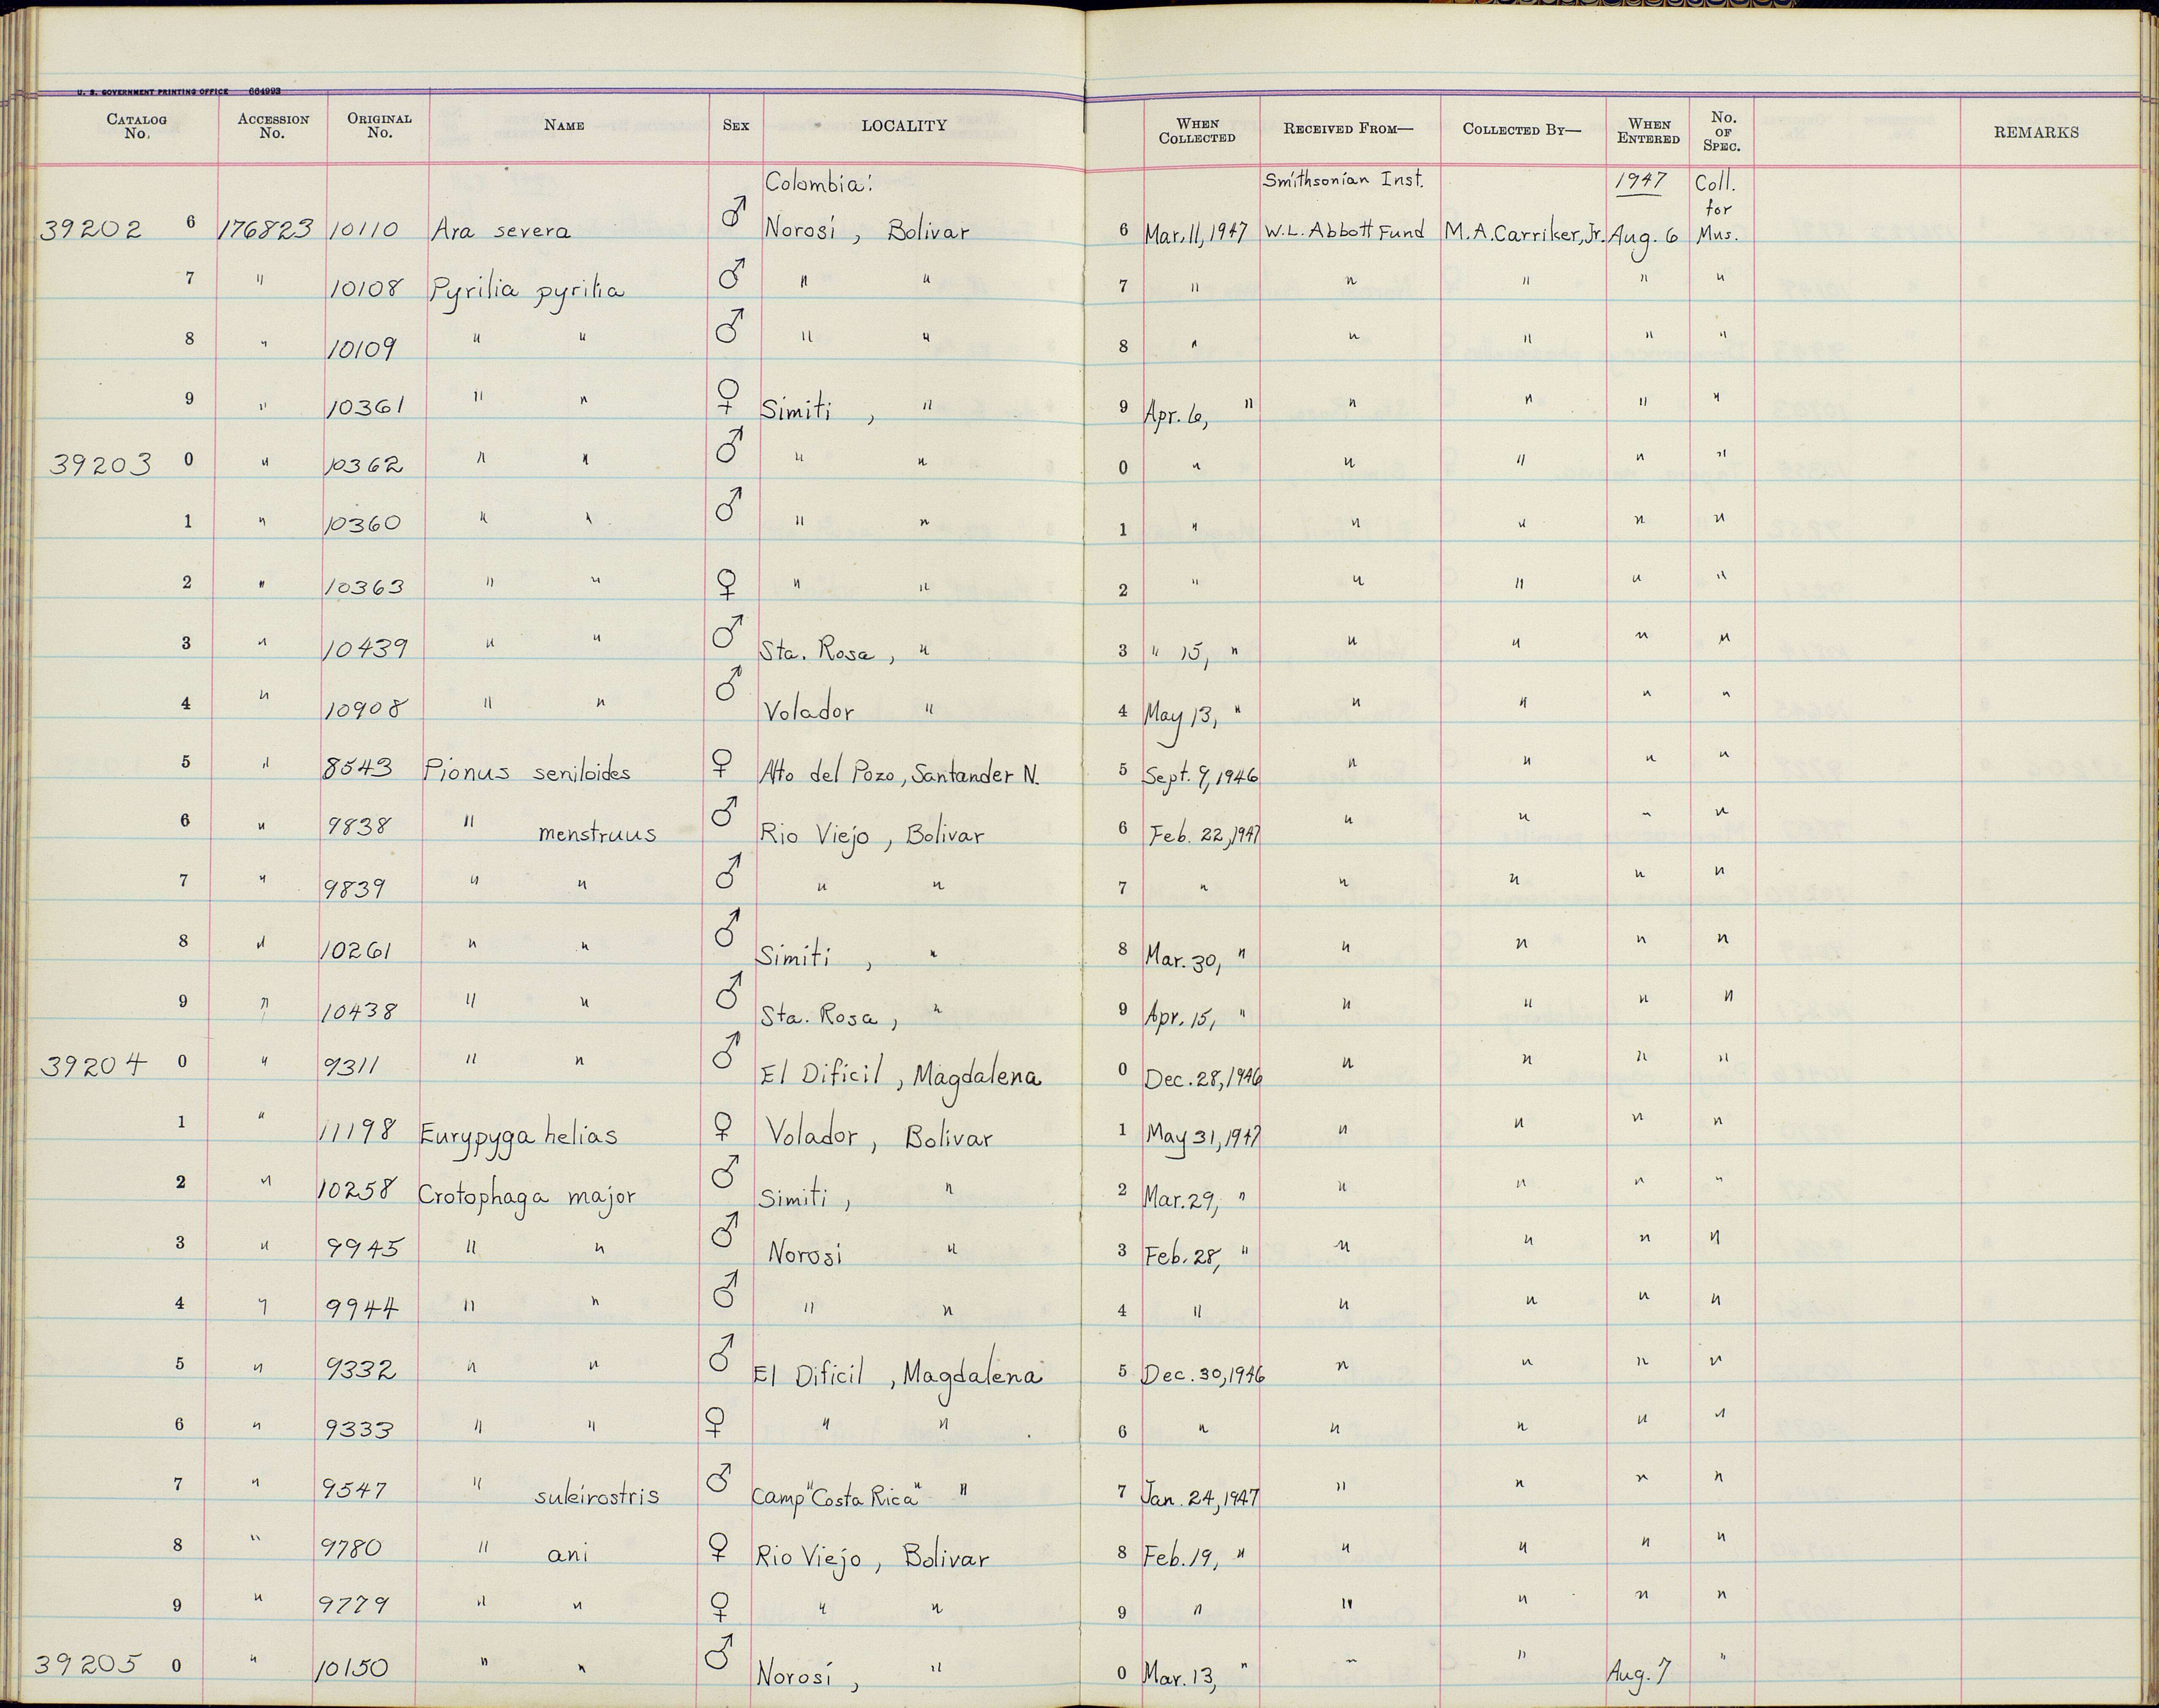 U. S. GOVERNMENT PRINTING OFFICE 664993
CATALOG No. ACCESSION No. ORIGINAL No. NAME SEX LOCALITY WHEN COLLECTED RECEIVED FROM— COLLECTED BY— WHEN ENTERED No. OF SPEC. REMARKS
Colombia: Smithsonian Inst. 1947 Coll. for
39202 6 176823 10110 Ara severa ♂ Norosí, Bolivar 6 Mar. 11, 1947 W.L. Abbott Fund M.A. Carriker, Jr. Aug. 6 Mus.
7 " 10108 Pyrilia pyrilia ♂ " " 7 " " " " "
8 " 10109 " " ♂ " " 8 " " " " "
9 " 10361 " " ♀ Simiti, " 9 Apr. 6, " " " " "
39203 0 " 10362 " " ♂ " " 0 " " " " "
1 " 10360 " " ♂ " " 1 " " " " "
2 " 10363 " " ♀ " " 2 " " " " "
3 " 10439 " " ♂ Sta. Rosa, " 3 " 15, " " " " "
4 " 10908 " " ♂ Volador " 4 May 13, " " " " "
5 " 8543 Pionus seniloides ♀ Alto del Pozo, Santander N. 5 Sept. 9, 1946 " " " "
6 " 9838 " menstruus ♂ Rio Viejo, Bolivar 6 Feb. 22, 1947 " " " "
7 " 9839 " " ♂ " " 7 " " " " "
8 " 10261 " " ♂ Simiti, " 8 Mar. 30, " " " " "
9 " 10438 " " ♂ Sta. Rosa, " 9 Apr. 15, " " " " "
39204 0 " 9311 " " ♂ El Dificil, Magdalena 0 Dec. 28, 1946 " " " "
1 " 11198 Eurypyga helias ♀ Volador, Bolivar 1 May 31, 1947 " " " "
2 " 10258 Crotophaga major ♂ Simiti, " 2 Mar. 29, " " " " "
3 " 9945 " " ♂ Norosi " 3 Feb. 28, " " " " "
4 " 9944 " " ♂ " " 4 " " " " "
5 " 9332 " " ♂ El Dificil, Magdalena 5 Dec. 30, 1946 " " " "
6 " 9333 " " ♀ " " 6 " " " " "
7 " 9547 " sulcirostris ♂ Camp "Costa Rica" " 7 Jan. 24, 1947 " " " "
8 " 9780 " ani ♀ Rio Viejo, Bolivar 8 Feb. 19, " " " " "
9 " 9779 " " ♀ " " 9 " " " " "
39205 0 " 10150 " " ♂ Norosí, " 0 Mar. 13, " " " Aug. 7 "